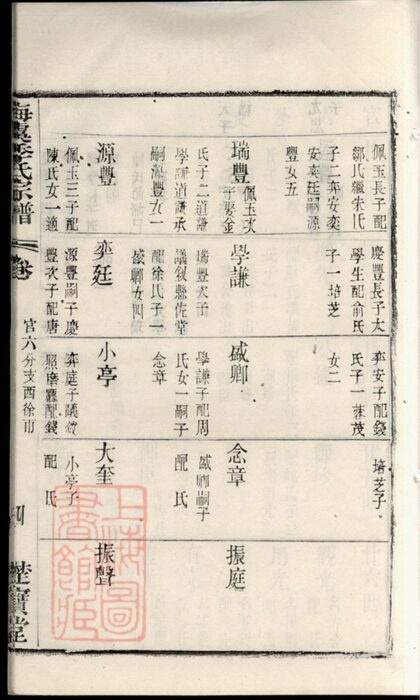 佩玉長子配
鄒氏繼朱氏
子二奕安奕
安奕廷嗣源
豐女五
瑞豐
佩玉次
子娶金
氏子二道謙
學謙道謙承
嗣源豐女一
源豐
佩玉三子配
陳氏女一適
慶豐長子太
學生配俞氏
子一培芝
學謙
瑞豐次子
議敘縣佐堂
配徐氏子一
盛卿女四
奕廷
源豐嗣子慶
豐次子配唐
奕安子配錢
氏子一葆茂
女二
盛卿
學謙子配周
氏女一嗣子
念章
小亭
奕庭子議敘
照磨廳配錢
培芝子
念章
盛卿嗣子
配 氏
大奎
小亭子
配 氏
振庭
振聲
氏宗譜
卷
官六分支西徐市
楚寶堂
上海圖
書館藏